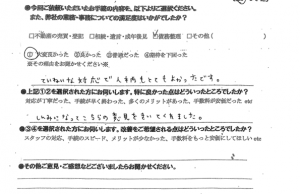 ●今回ご依頼いただいたお手続の内容を、以下よりご選択ください。
また、弊社の業務・事務についての満足度はいかがでしたか？
□不動産の売買・登記 □相続・遺言・成年後見 □その他( )
①大変良かった ②良かった ③普通だった ④期待を下回った
※その理由をお聞かせください※
ていねいな対応で人柄もとてもよかったです。
●上記①②を選択された方にお伺いします。特に良かった点はどういったところでしたか？
対応が丁寧だった、手続が早く終わった、多くのメリットがあった、手数料が安かった etc
しんみになってこちらの意見をきいてくれました。
●③④を選択された方にお伺いします。改善をご希望される点はどういったところでしたか？
スタッフの対応、手続のスピード、メリットが少なかった、手数料をもっと安価にしてほしい etc
●その他ご意見・ご感想などございましたらお聞かせください。